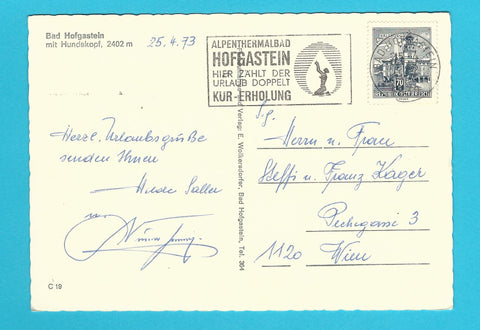 Bad Hofgastein
mit Hundskopf, 2402 m
25.4.73
ALPENTHERMALBAD
HOFGASTEIN
HIER ZÄHLT DER
URLAUB DOPPELT
KUR-ERHOLUNG
BAD HOFGASTEIN
70
REPUBLIK ÖSTERREICH
Herzl. Urlaubsgrüße
senden Ihnen
Hilde Saller
Verlag: E. Wolkersdorfer, Bad Hofgastein, Tel. 364
Sg.
Herrn u. Frau
Steffi u. Franz Kager
Pechegasse 3
1120 Wien
C 19